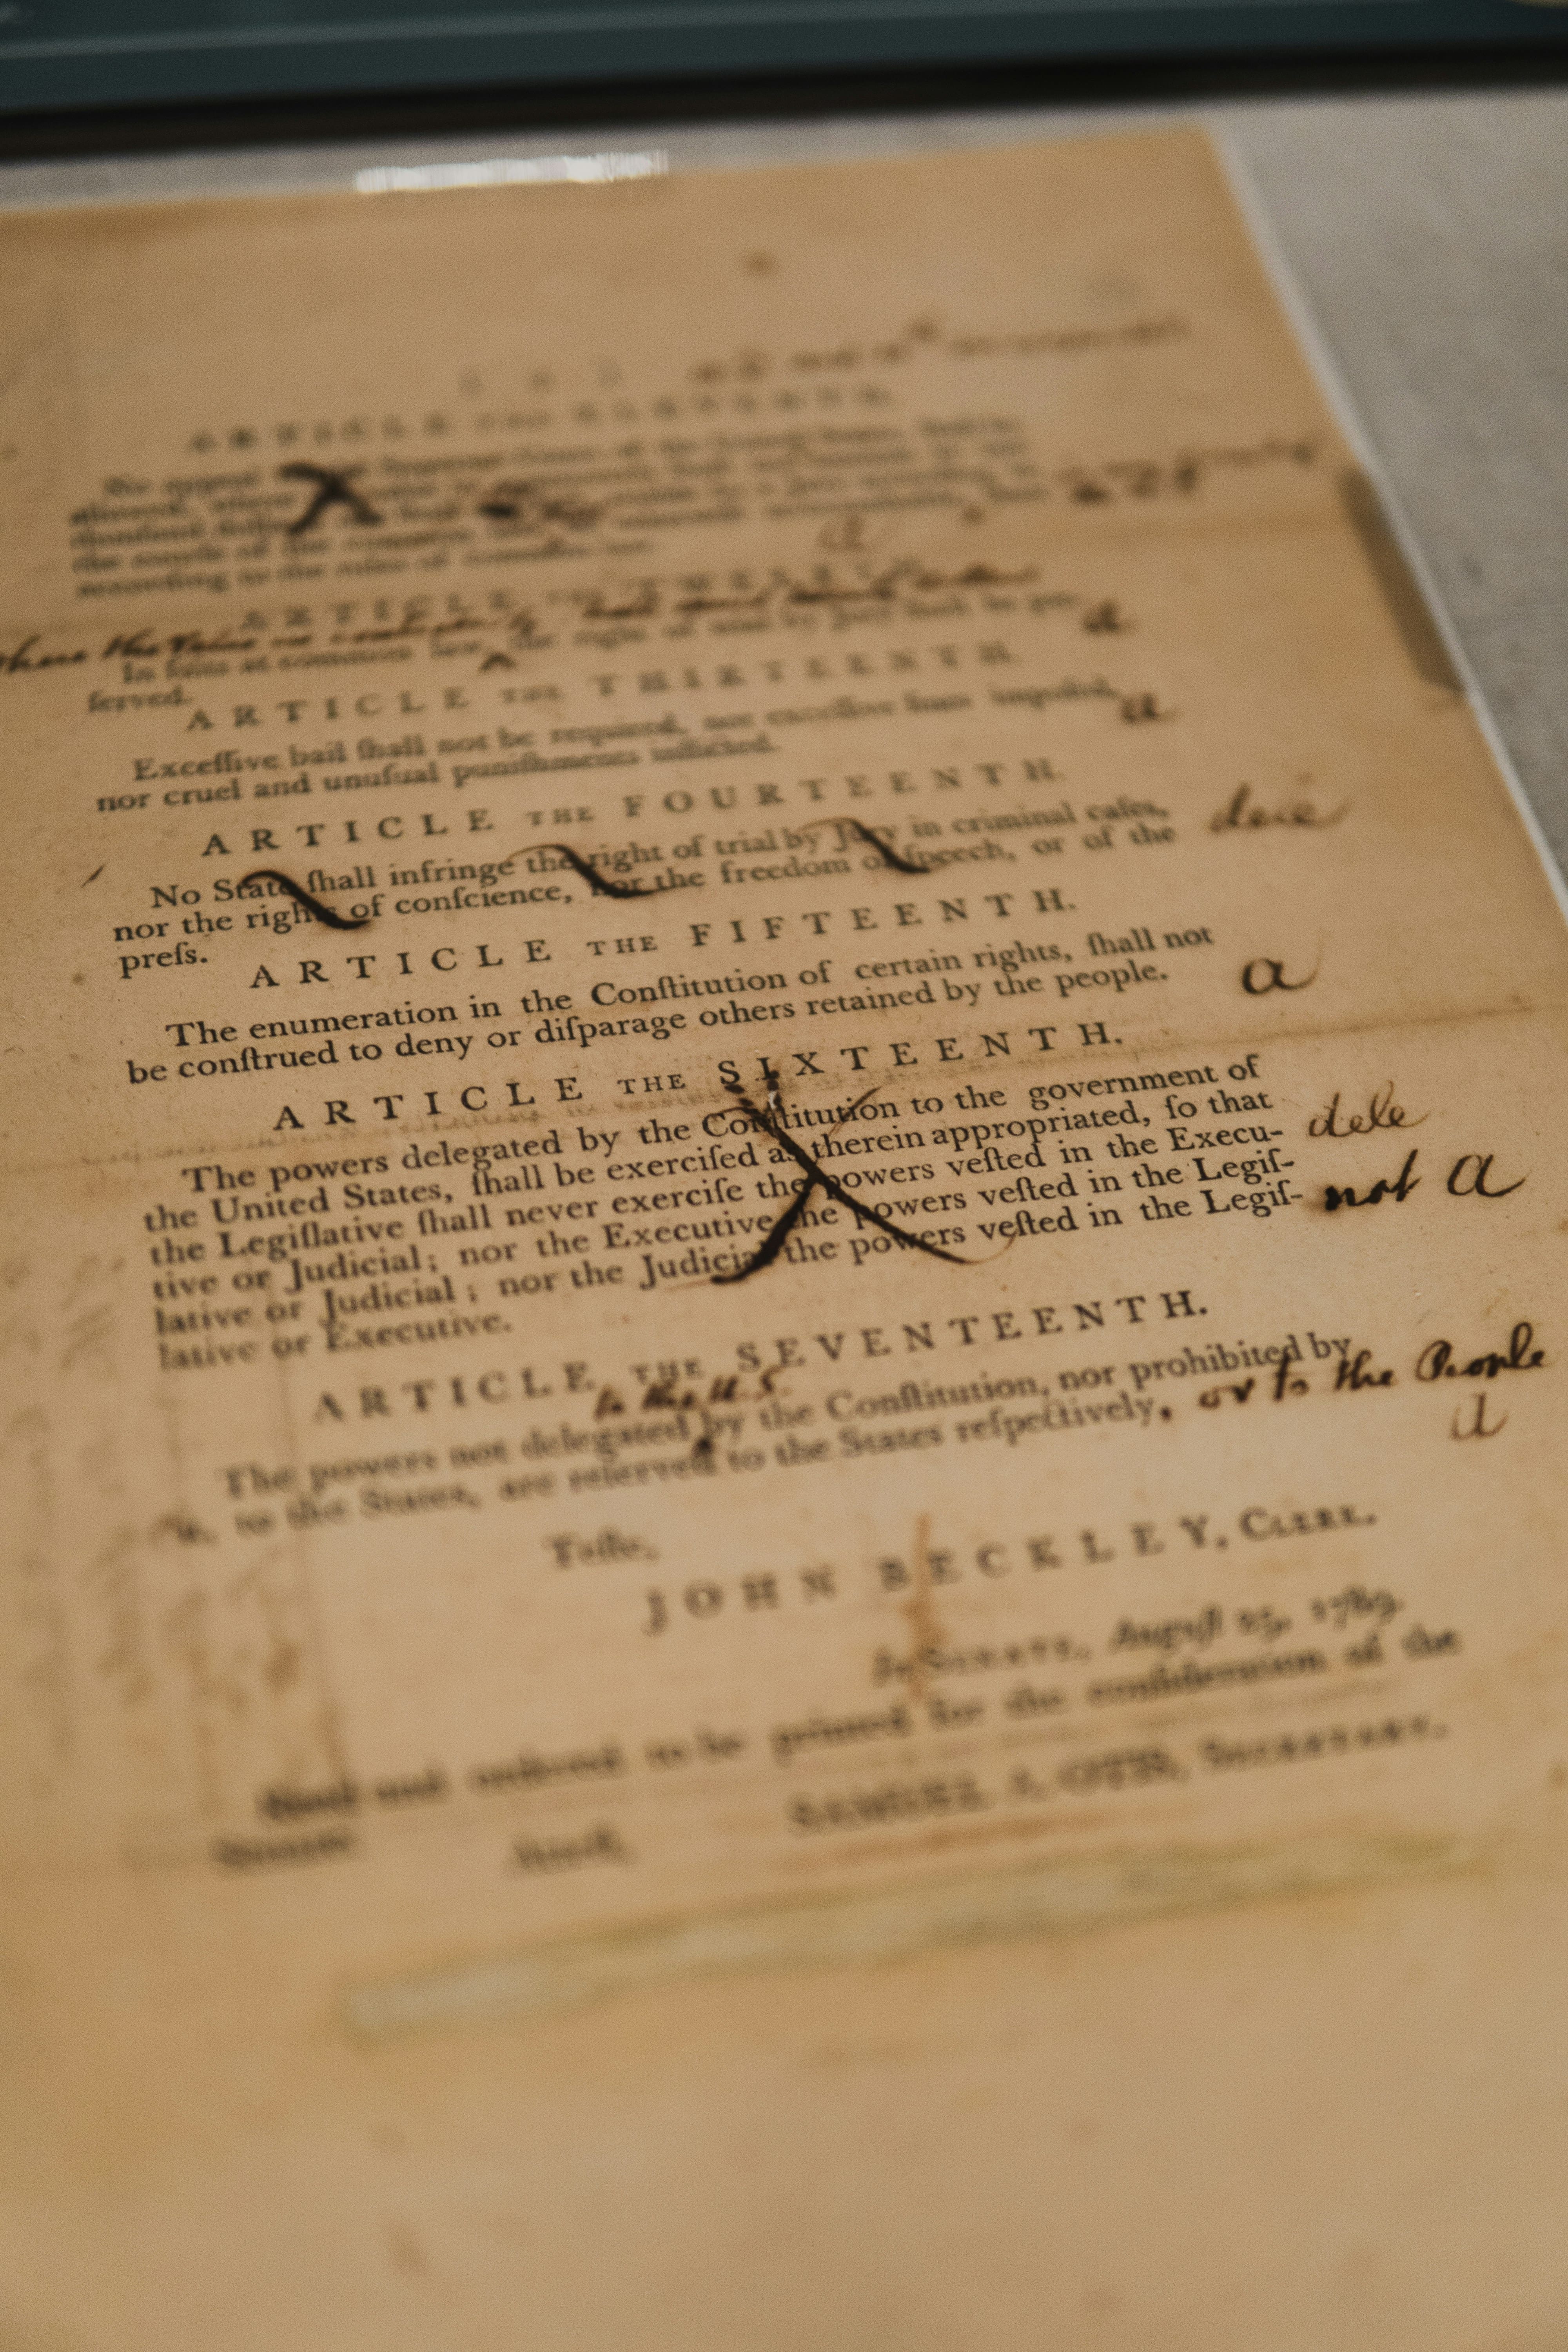 ARTICLE THE ELEVENTH.
No appeal Supreme Court of the United States, shall be
allowed, where
according to the rules of common law.
ARTICLE THE TWELFTH.
where the
In suits at common law, the right of trial by jury shall be pre-
ſerved.
a
ARTICLE THE THIRTEENTH.
Exceſſive bail ſhall not be required, nor exceſſive fines impoſed,
a
nor cruel and unuſual puniſhments inflicted.
ARTICLE THE FOURTEENTH.
No State ſhall infringe the right of trial by Jury in criminal caſes,
dele
nor the rights of conſcience, nor the freedom of ſpeech, or of the
preſs.
ARTICLE THE FIFTEENTH.
The enumeration in the Conſtitution of certain rights, ſhall not
a
be conſtrued to deny or diſparage others retained by the people.
ARTICLE THE SIXTEENTH.
The powers delegated by the Conſtitution to the government of
the United States, ſhall be exerciſed as therein appropriated, ſo that
dele
the Legiſlative ſhall never exerciſe the powers veſted in the Execu-
tive or Judicial; nor the Executive the powers veſted in the Legiſ-
not a
lative or Judicial; nor the Judicial the powers veſted in the Legiſ-
lative or Executive.
ARTICLE THE SEVENTEENTH.
to the U.S.
The powers not delegated by the Conſtitution, nor prohibited by
it, to the States, are reſerved to the States reſpectively, or to the People
a
Teſte,
JOHN BECKLEY, CLERK.
In SENATE, Auguſt 25, 1789.
Read and ordered to be printed for the conſideration of the
Senate.
Atteſt,
SAMUEL A. OTIS, SECRETARY.